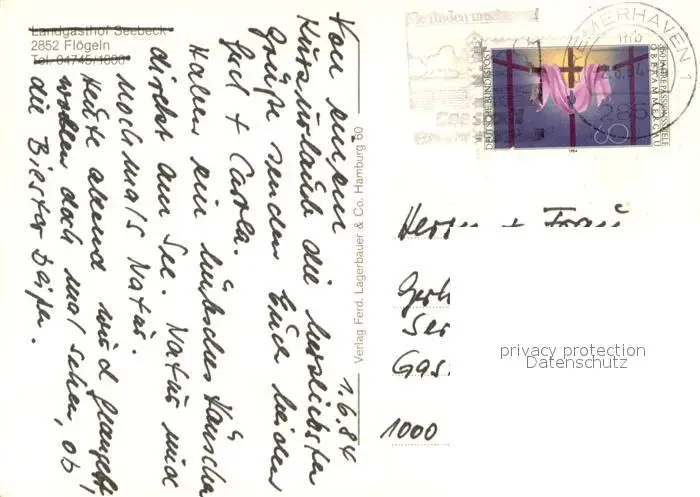 Landgasthof Seebeck
2852 Flögeln
Tel. 04745/1000
1.6.84
Von einem
Kurzurlaub die herzlichsten
Grüße senden Euch beiden
Gert + Carla.
Haben ein hübsches Häuschen
direkt am See. Natur und
nochmals Natur.
Heute abend wird geangelt,
wollen doch mal sehen, ob
die Biester beißen.
Verlag Ferd. Lagerbauer & Co. Hamburg 60
EMERHAVEN 1
DEUTSCHE BUNDESPOST
350 JAHRE PASSIONSSPIELE
OBERAMMERGAU
1984
Herrn + Frau
Ger
Ser
Gas
1000
privacy protection
Datenschutz